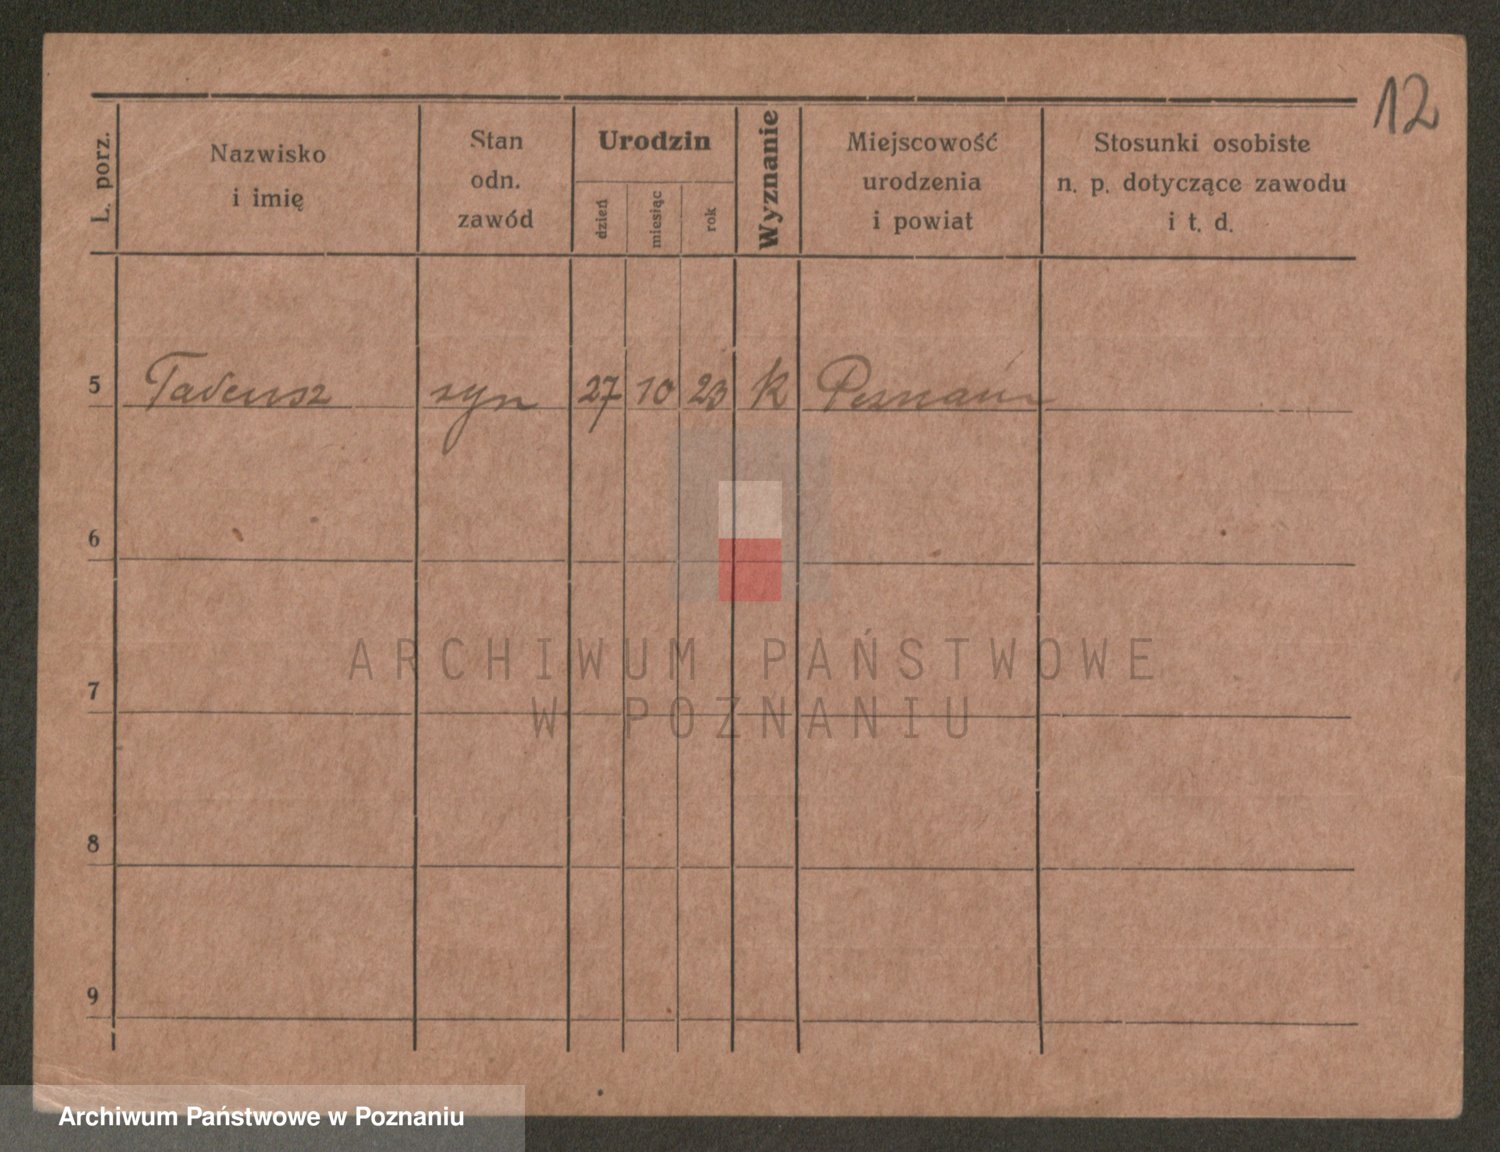 12
L. porz. Nazwisko i imię Stan odn. zawód Urodzin dzień miesiąc rok Wyznanie Miejscowość urodzenia i powiat Stosunki osobiste n. p. dotyczące zawodu i t. d.
5 Tadeusz syn 27 10 23 k Poznań
6
ARCHIWUM PAŃSTWOWE
7
W POZNANIU
8
9
Archiwum Państwowe w Poznaniu